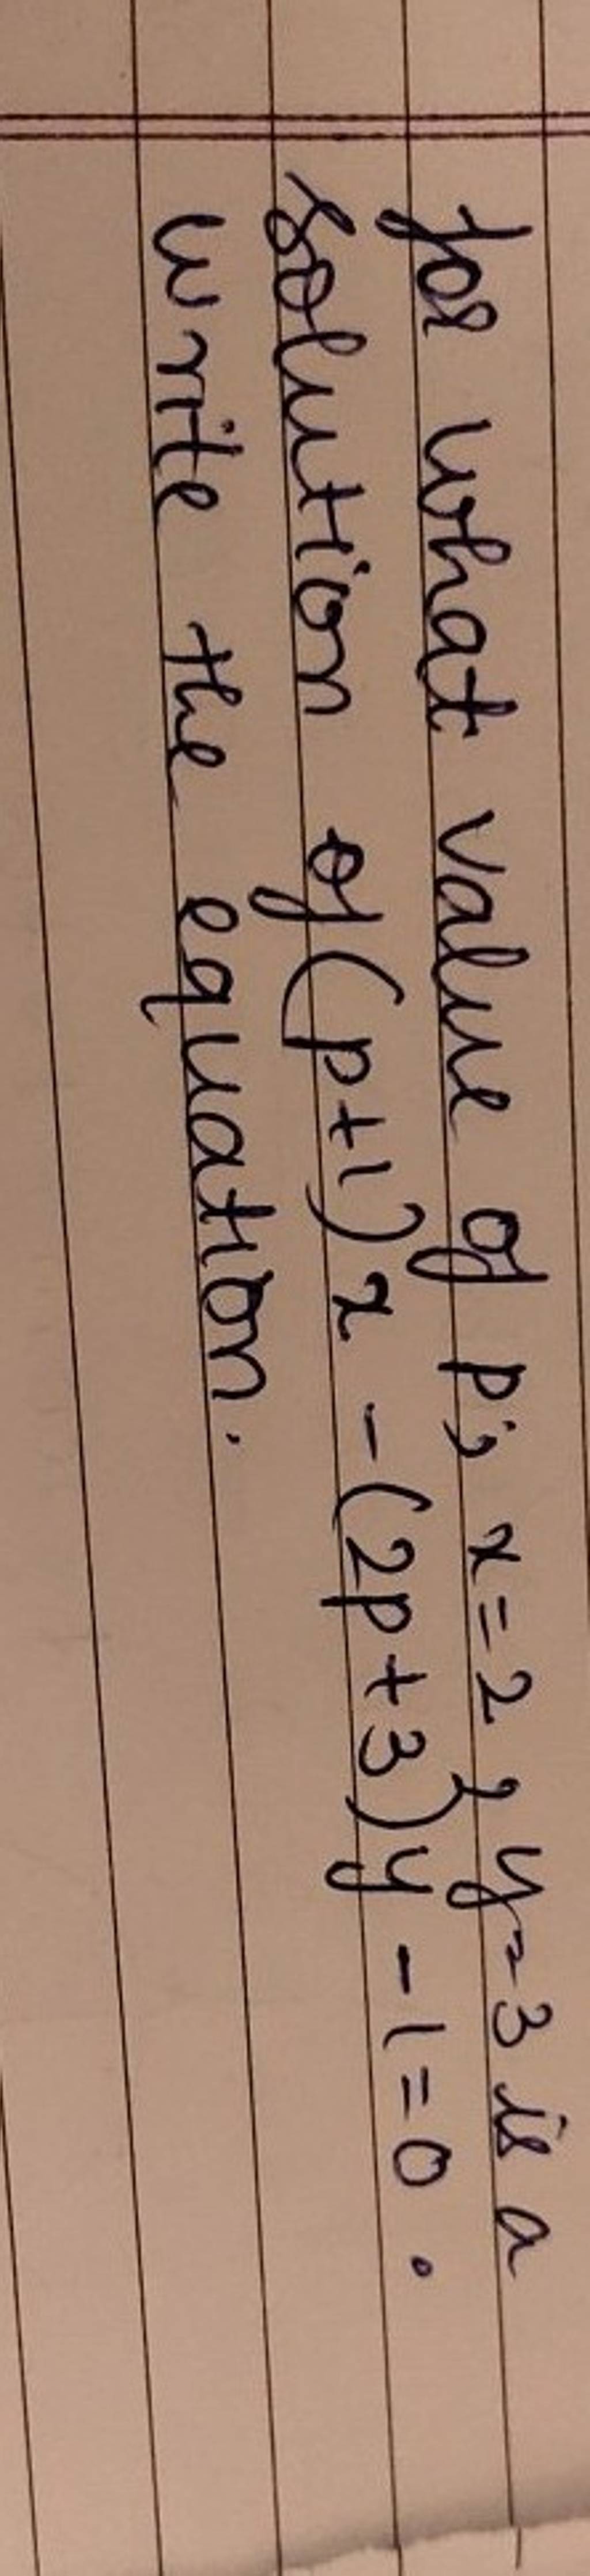 for what value of p; x=2, y=3 is a
solution of (p+1)x -(2p+3)y -1=0.
write the equation.